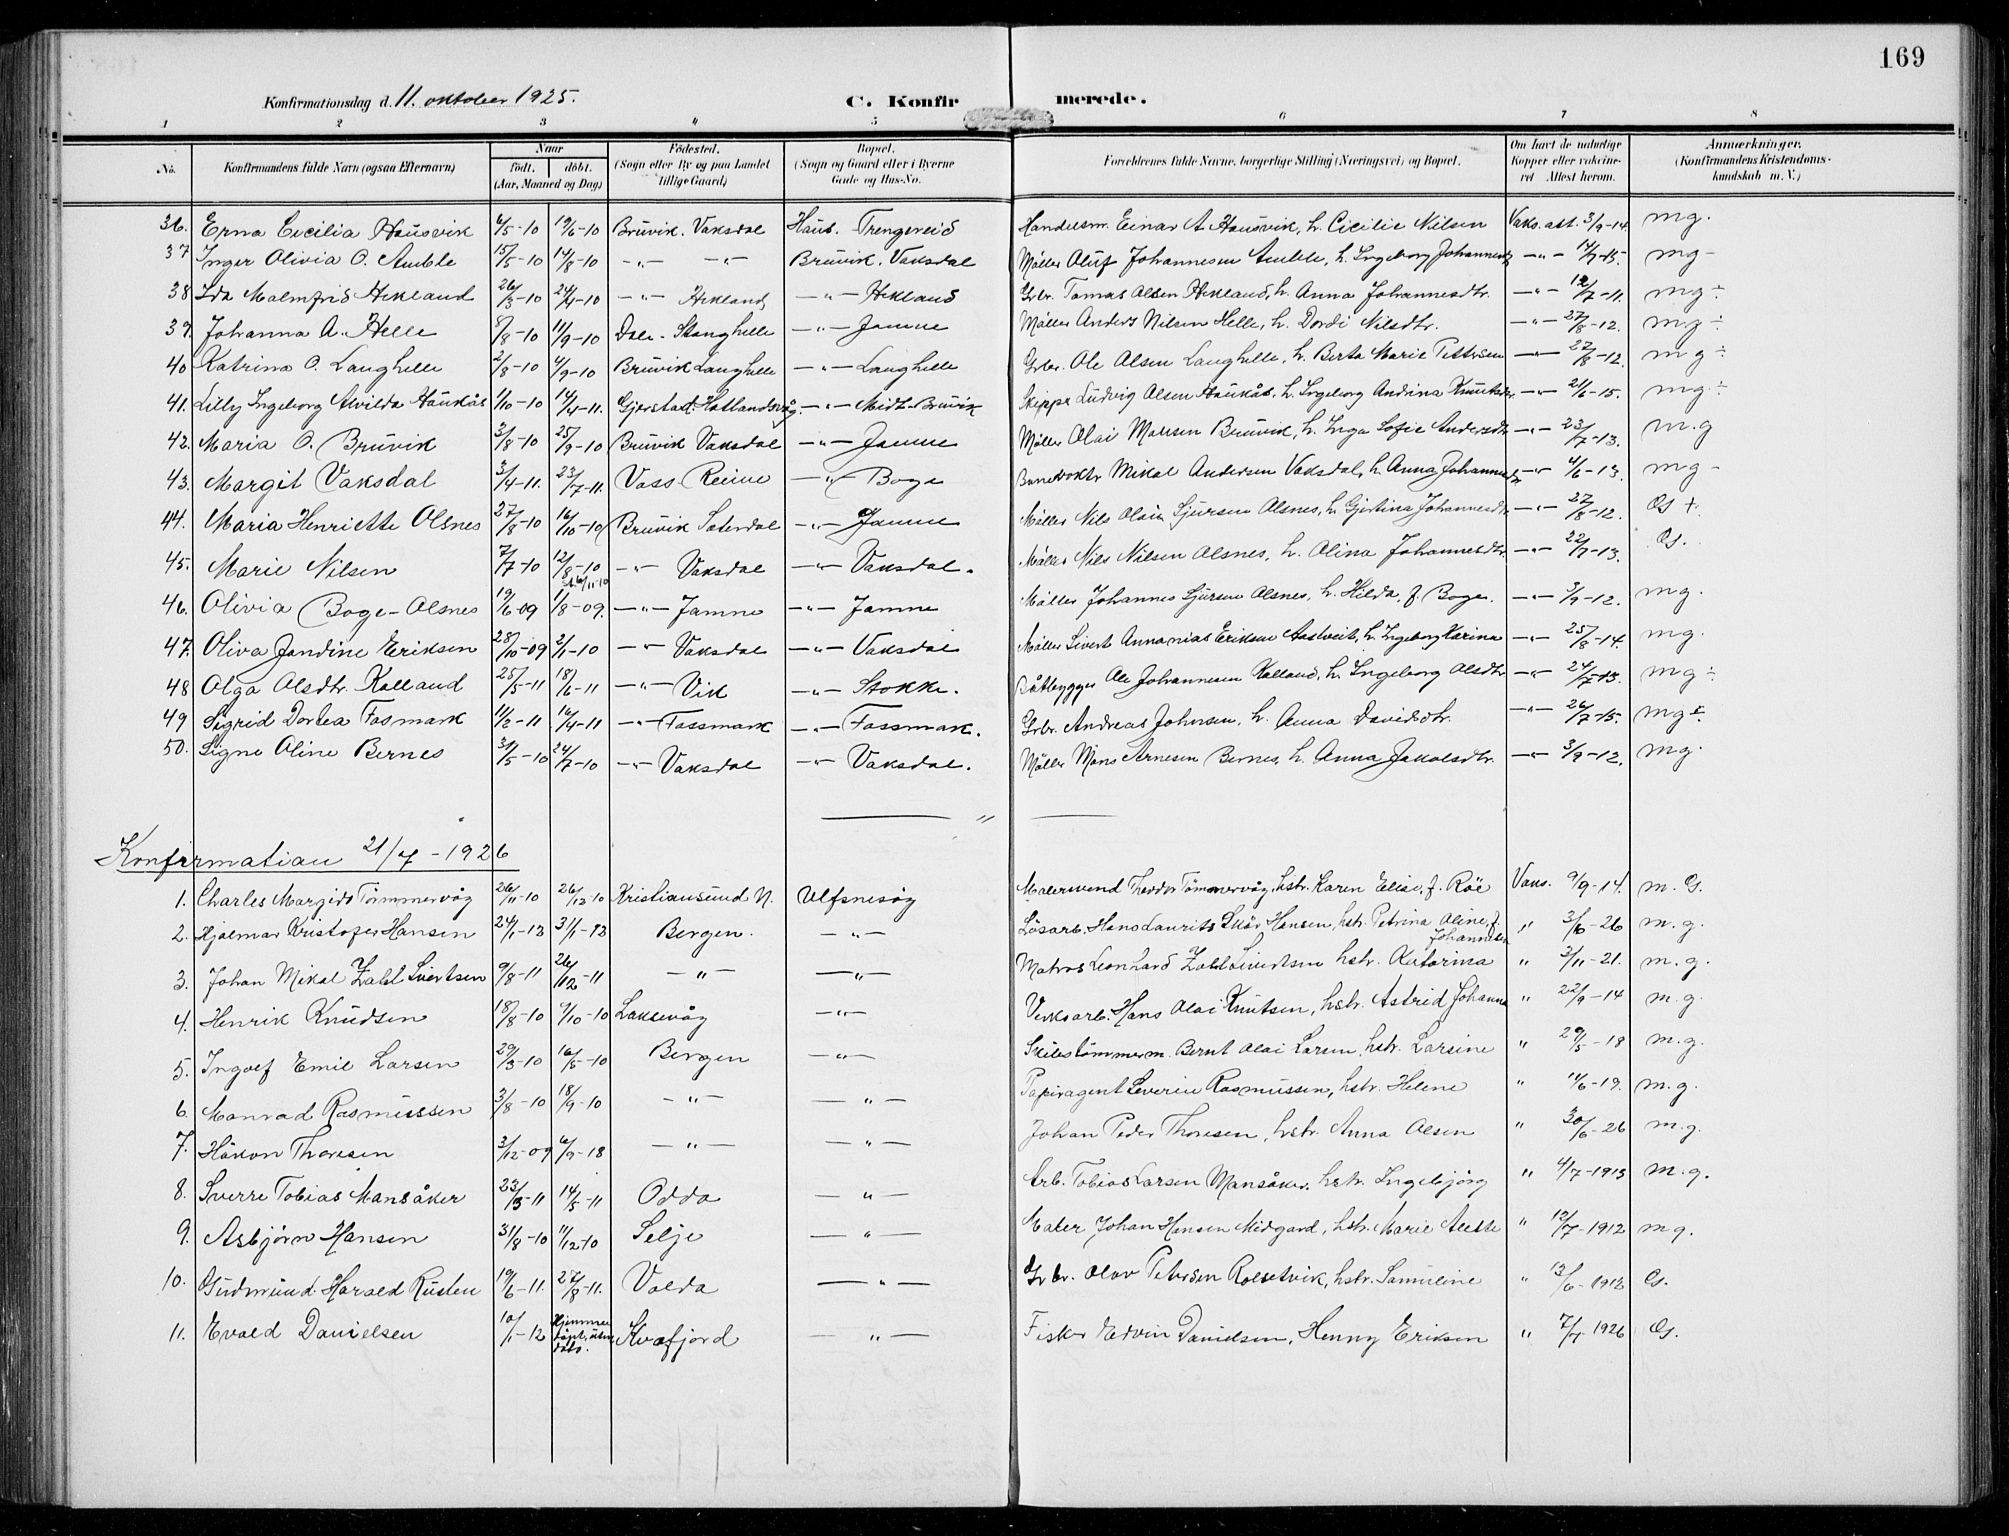 169
Konfirmationsdag d. 11. oktober 1925. C. Konfirmerede.
1 2 3 4 5 6 7 8
No. Konfirmandens fulde Navn (ogsaa Efternavn) Naar født. døbt. (Aar, Maaned og Dag) Fødested. (Sogn eller By og paa Landet tillige Gaard) Bopæl. (Sogn og Gaard eller i Byerne Gade og Hus-No. Forældrenes fulde Navne, borgerlige Stilling (Næringsvei) og Bopæl. Om havt de naturlige Kopper eller vakcineret Attest herom. Anmærkninger. (Konfirmandens Kristendomskundskab m. V.)
36. Erna Cecilia Hausvik 6/5-10 19/6-10 Bruvik. Vaksdal Haus. Trengereid Handelsm. Einar A. Hausvik, h. Cicilie Nilsen Vaks. att. 3/9-14. mg.
37 Inger Olivia O. Amble 15/5-10 14/8-10 -"- -"- Bruvik. Vaksdal Möller Oluf Johannesen Amble, h. Ingeborg Johannesdtr -"- 14/7-15. mg-
38 Ida Malmfrid Hekland 26/3-10 24/4-10 -"- Hekland -"- Hekland Grbr. Tomas Olsen Hekland, h. Anna Johannesdtr. -"- 12/7-11. mg÷
39. Johanna A. Helle 8/8-10 11/9-10 Dale. Stanghelle -"- Jamne Möller Anders Nilsen Helle, h. Dordi Nilsdtr. -"- 27/8-12. mg÷
40 Katrina O. Langhelle 2/8-10 4/9-10 Bruvik Langhelle -"- Langhelle Grbr. Ole Olsen Langhelle, h. Berta Marie Pettersen -"- 27/8-12. mg÷
41. Lilly Ingeborg Alvilda Haukås 1/10-10 14/4-11. Gjerstad. Hatlandsvåg -"- Midt-Bruvik Skipper Ludvig Olsen Haukås, h. Ingeborg Andrina Knutsdtr. -"- 21/6-15. mg÷
42. Maria O. Bruvik 3/8-10 25/9-10 Bruvik Vaksdal -"- Jamne Möller Olai Monsen Bruvik, h. Inga Sofie Andersdtr -"- 23/7-13. m.g
43. Margit Vaksdal 3/4-11. 23/7-11. Voss Reime -"- Boge Banevoktr Mikal Andersen Vaksdal, h. Anna Johannesdtr -"- 4/6-13. mg-
44. Maria Henriette Olsnes 27/8-10 16/10-10 Bruvik Soterdal -"- Jamne Möller Nils Olai Sjursen Olsnes, h. Gjertina Johannesdtr -"- 27/8-12. Gs +.
45. Marie Nilsen 7/7-10 12/8-10 -"- Vaksdal -"- Vaksdal. Möller Nils Nilsen Olsnes, h. Olina Johannesdtr. -"- 22/7-13. Gs.
46. Olivia Boge-Olsnes 19/6-09 1/8-09. -"- Jamne -"- Jamne Möller Johannes Sjursen Olsnes, h. Hilda, f. Boge. -"- 3/9-12. mg.
47. Oliva Jandine Eriksen 28/10-09 2/1-10 -"- Vaksdal -"- Vaksdal Möller Sivert Annanias Eriksen Aastveit, h. Ingeborg Karina -"- 25/8-14. mg.
48 Olga Olsdtr. Kalland 25/5-11 18/6-11 -"- Vik -"- Stokke. Båtbygger Ole Johannesen Kalland, h. Ingeborg Olsdtr -"- 24/7-13. mg÷
49 Sigrid Dortea Fosmark 11/2-11 16/4-11 -"- Fossmark -"- Fossmark. Grbr. Andreas Johnsen, h. Anna Davidsdtr. -"- 26/7-15. mg±.
50. Signe Oline Bernes 31/5-10 24/7-10 -"- Vaksdal -"- Vaksdal. Möller Mons Arnesen Bernes, h. Anna Jakobsdtr. -"- 3/9-12. mg.
Konfirmation 21/7-1926
1. Charles Margido Tömmervåg 26/11-10 26/12-10 Kristiansund N. Ulfsnesöy Malersvend Theodor Tömmervåg, hstr. Karen Elise, f. Röe Vaks. 9/9-14. m. G.
2. Hjalmar Kristofer Hansen 24/1-12 31/1-12 Bergen. -"- Lösarb. Hans Laurits Skår Hansen, hstr. Petrina Oline, f. Johannesen " 3/6-26 m.g.
3. Johan Mikal Zahl Sivertsen 9/8-11 26/12-11 -"- -"- Matros Leonhard Zahl Sivertsen hstr. Katarina " 3/11-21. m.g.
4. Henrik Knudsen 18/8-10 9/10-10 Laksevåg -"- Verksarb. Hans Olai Knutsen, hstr. Astrid Johanna " 22/9-14 m.g.
5. Ingolf Emil Larsen 29/3-10 16/5-10 Bergen -"- Skibstömmerm. Bernt Olai Larsen, hstr. Larsine " 29/5-18 m.g.
6. Monrad Rasmussen 3/8-10 18/9-10 -"- -"- Papiragent Severin Rasmussen, hstr. Helene " 11/6-19. m.g.
7. Håkon Thoresen 3/12-09 6/9-18 -"- -"- Johan Peder Thoresen, hstr. Anna Olsen " 30/6-26 m.g.
8. Sverre Tobias Mansåker 23/3-11 14/5-11 Odda -"- Arb. Tobias Larsen Mansåker. hstr. Ingebjörg " 4/7-1913 m.g.
9. Asbjörn Hansen 31/8-10 11/12-10 Selje -"- Maler Johan Hansen Midgard, hstr. Marie Alette " 12/7-1912 mg.
10. Gudmund Harald Rusten 19/6-11. 27/8-11. Volda -"- Grbr. Olav Petersen Rolsetvik, hstr. Samuline " 13/6-1912 Gs.
11. Evald Danielsen 10/1-12 Hjemmedöpt, uten dato. Kvæfjord -"- Fisker Edvin Danielsen, Henny Eriksen " 7/7 1926 Gs.